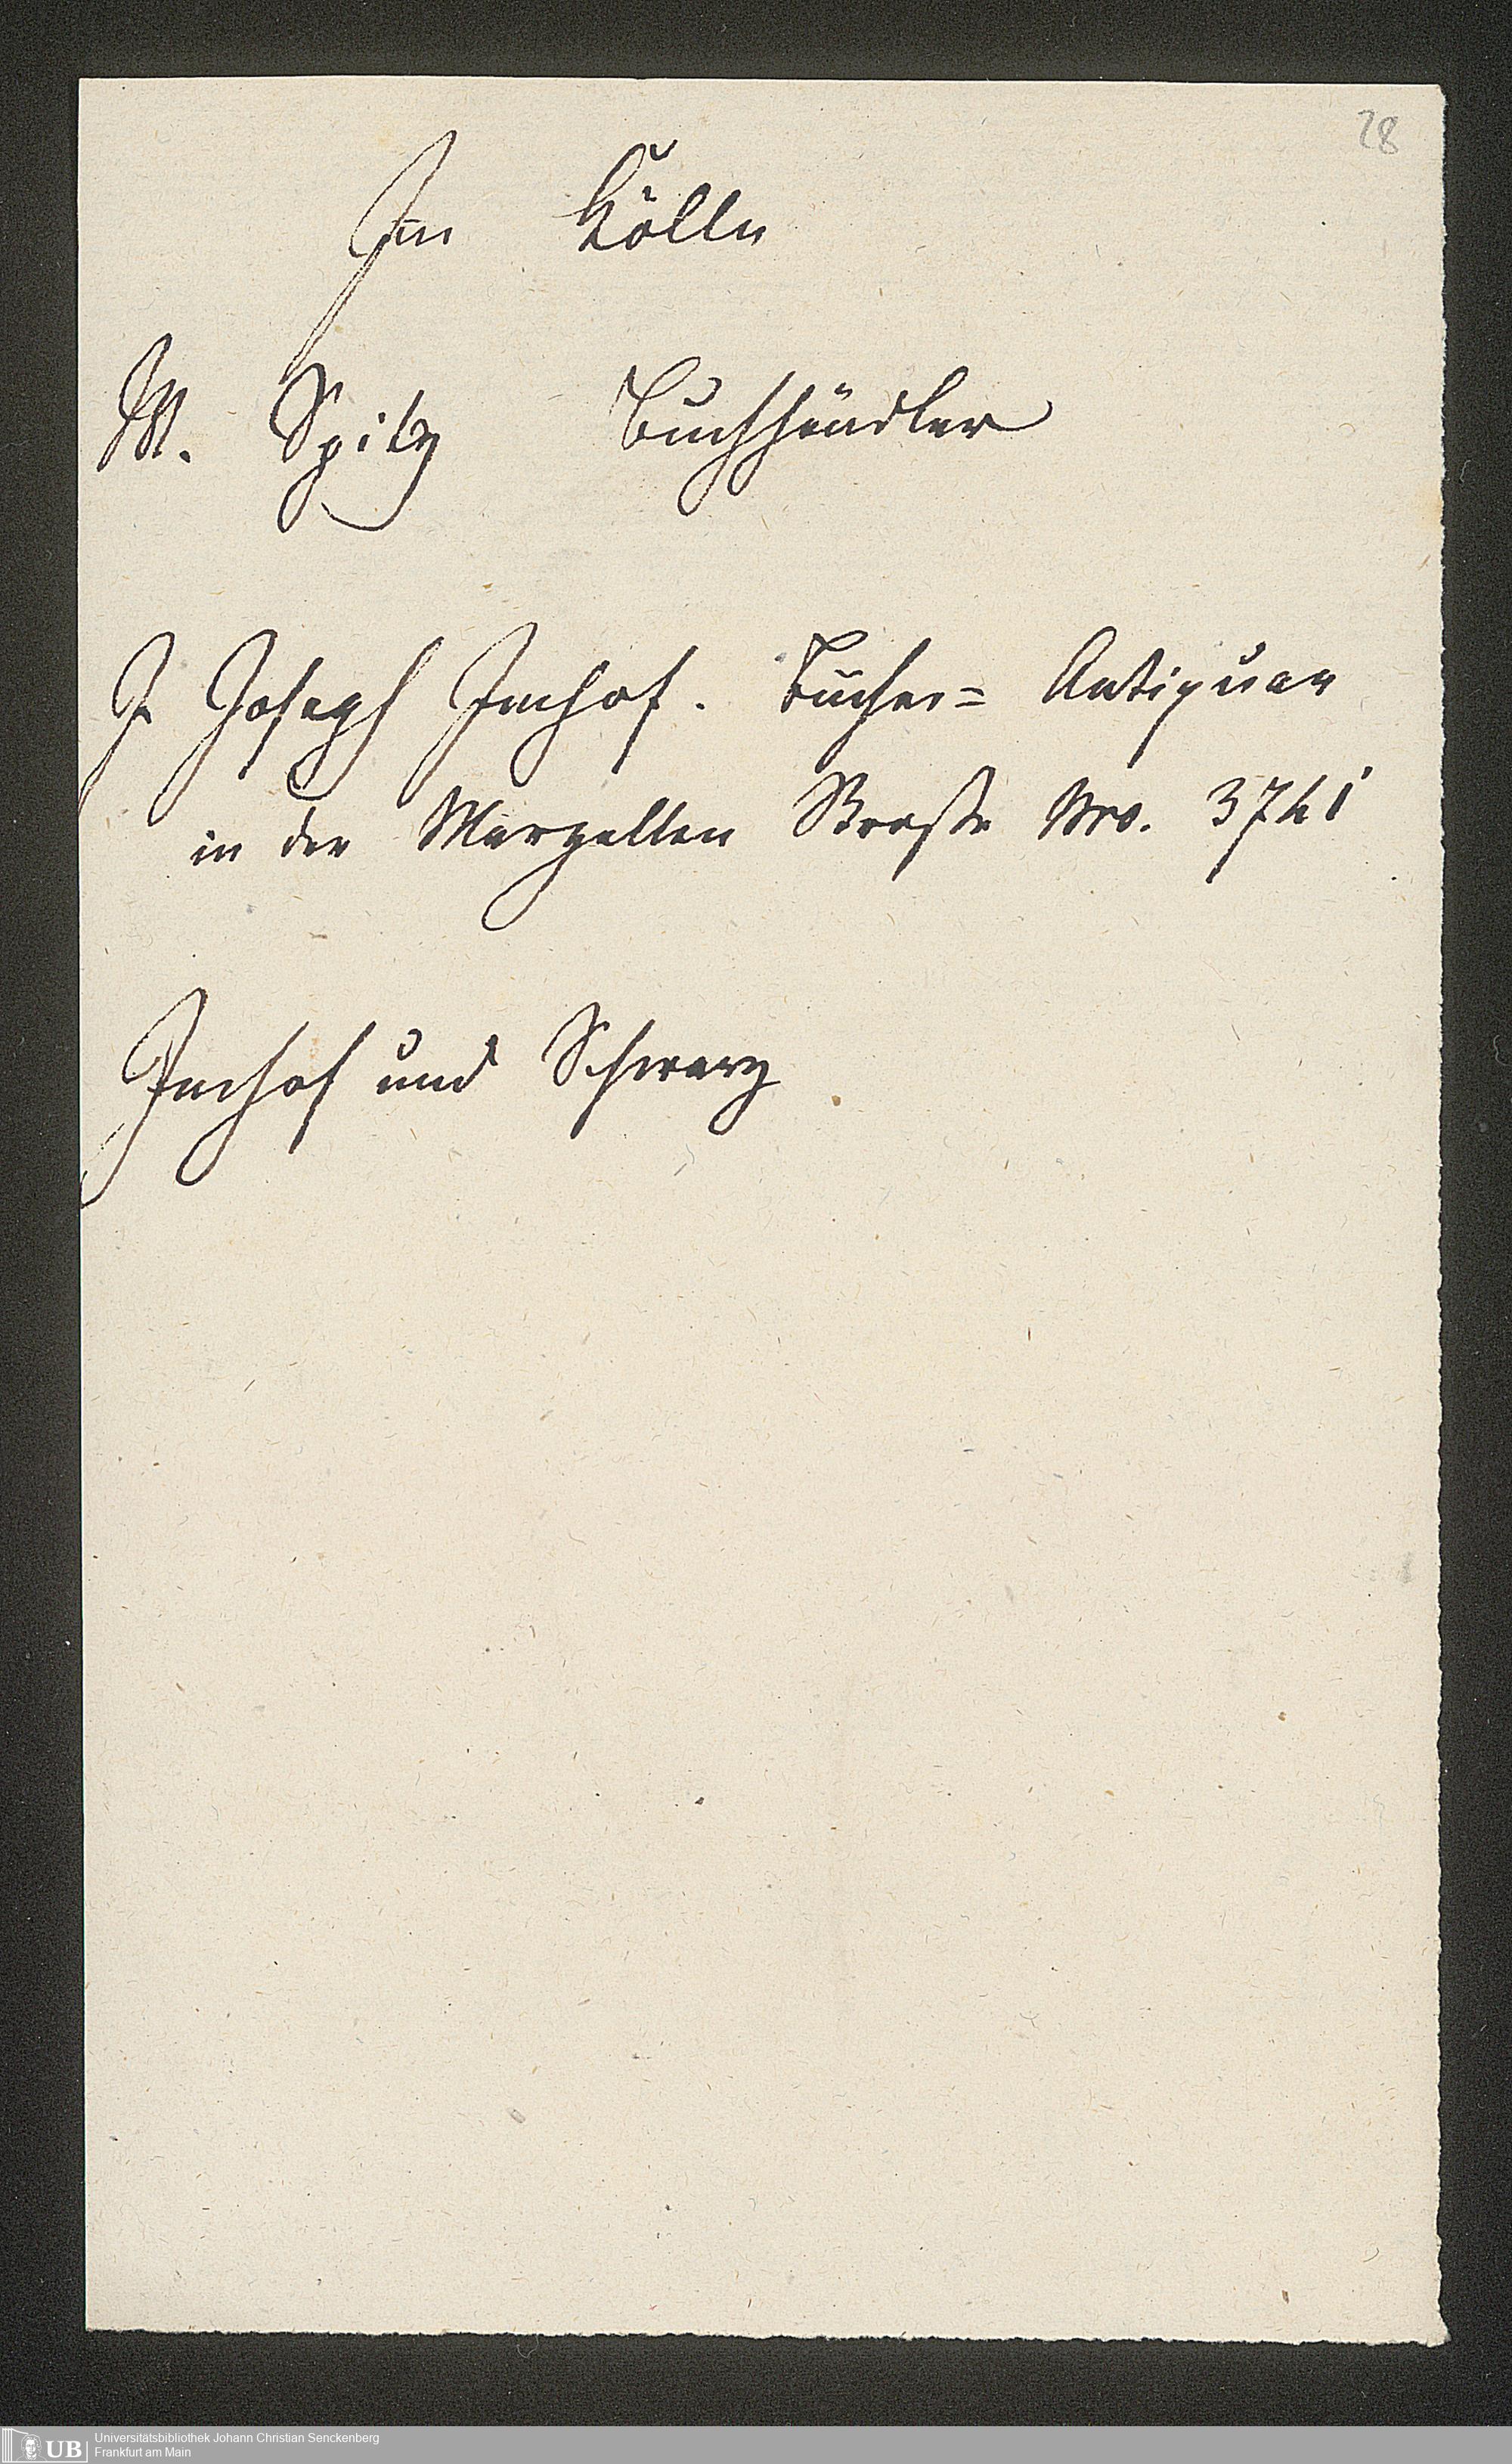 28
In Kölln
M. Spitz Buchhändler
J Joseph Imhof. Bücher= Antiquar
in der Marzellen Straße Nro. 3741
Imhof und Schwarz
UB Universitätsbibliothek Johann Christian Senckenberg
Frankfurt am Main